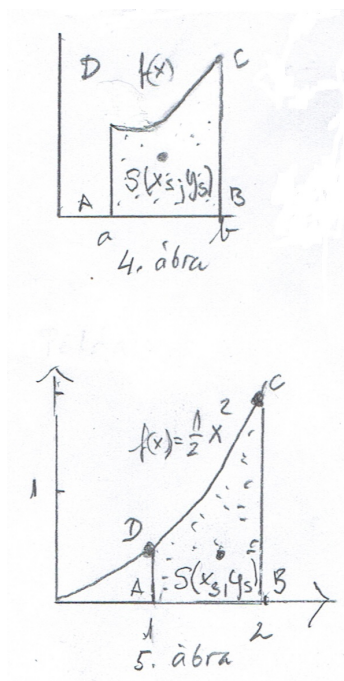 D f(x) C
S(xs;ys)
A B
a b
4. ábra
C
f(x)=1/2 x²
1
D
A S(xs,ys) B
1 2
5. ábra